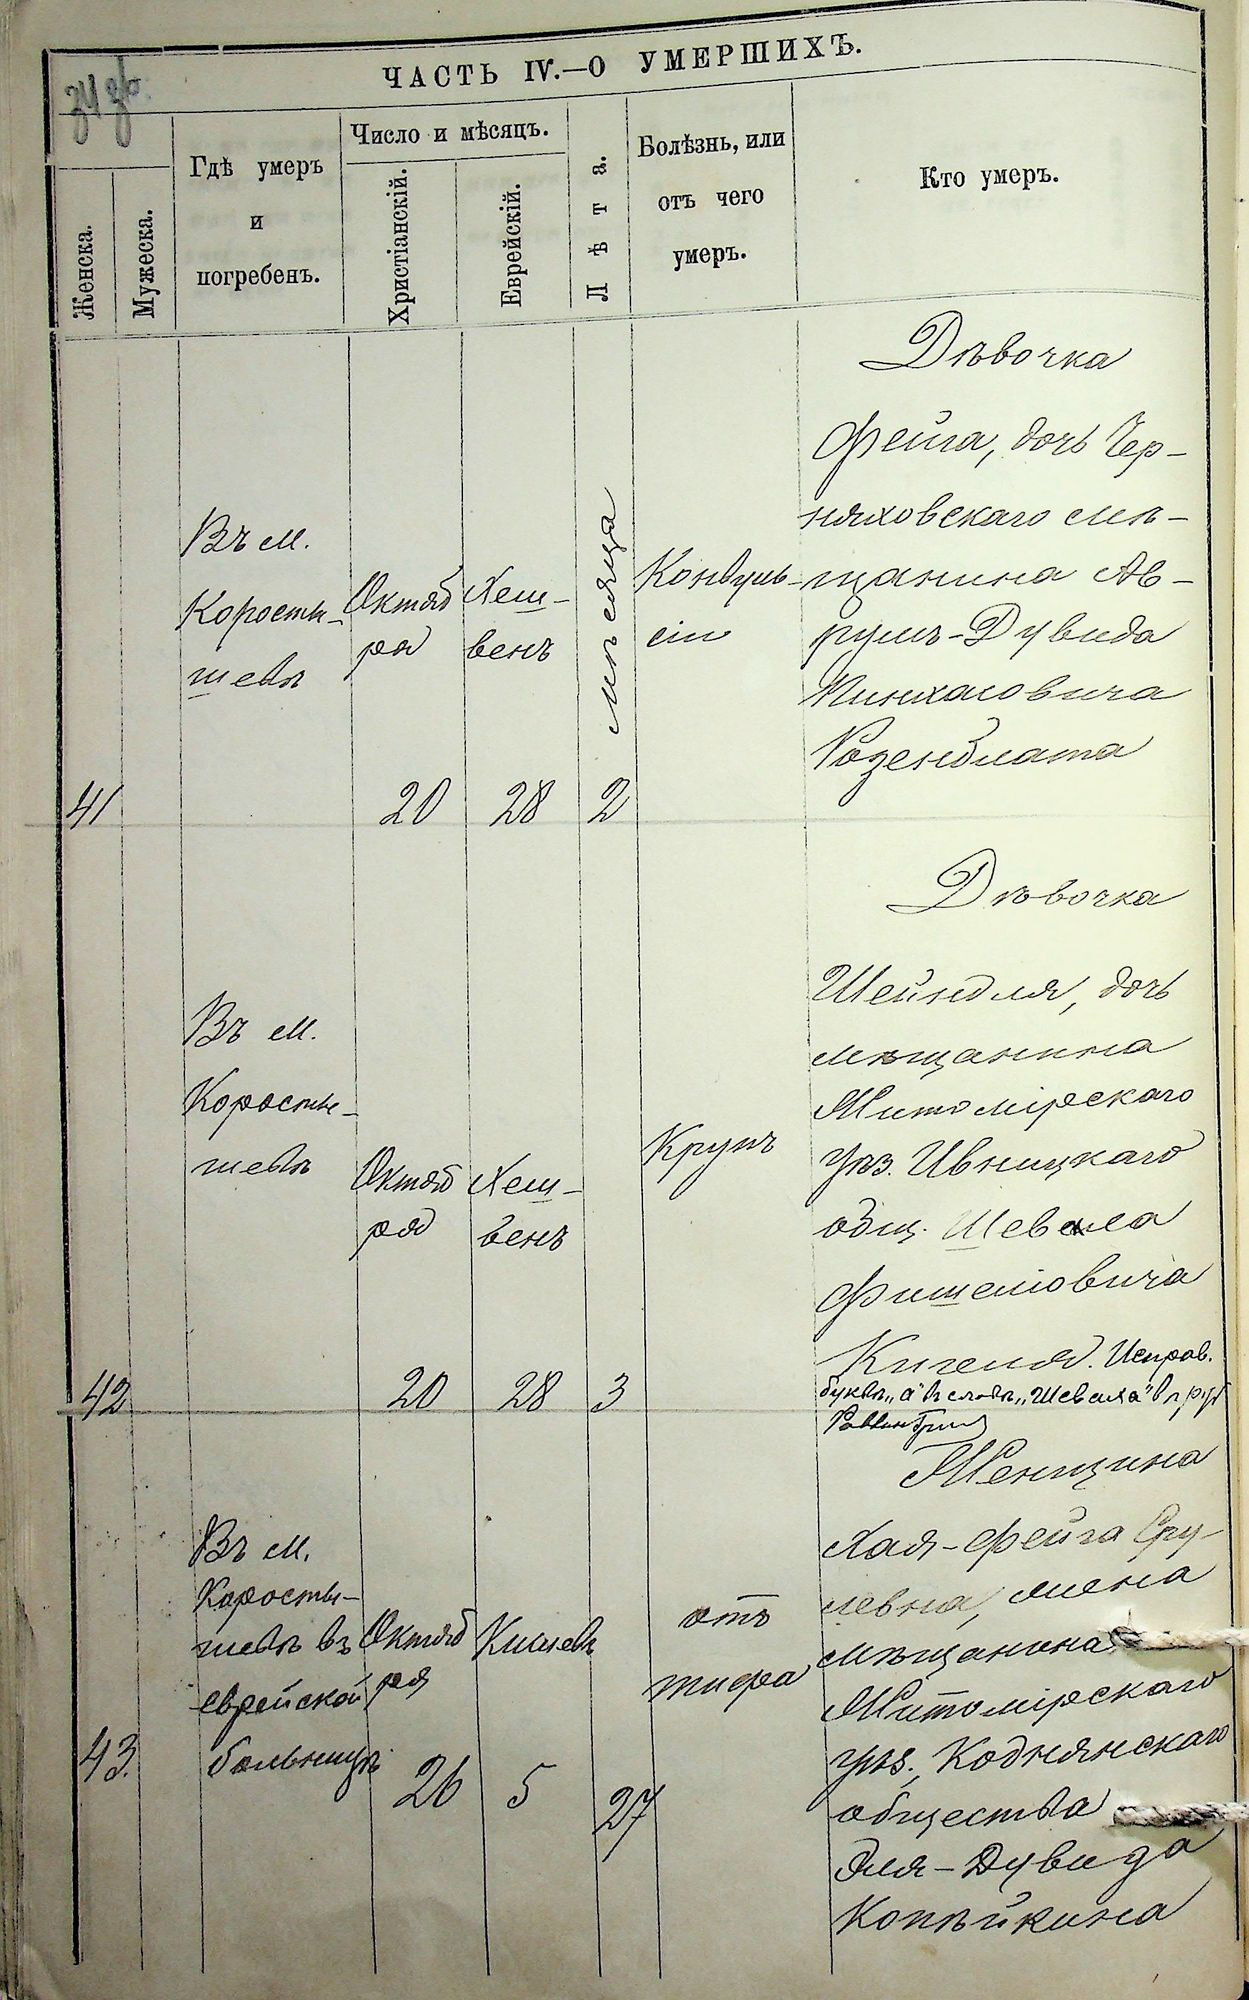 ЧАСТЬ IV.—О УМЕРШИХЪ.
Женска.
Мужеска.
Гдѣ умеръ
и
погребенъ.
Число и мѣсяцъ.
Христіанскій.
Еврейскій.
Лѣта.
Болѣзнь, или
отъ чего
умеръ.
Кто умеръ.
41
Въ м.
Корости-
шевѣ
Октяб
ря
20
Хеш-
венъ
28
мѣсяца
2
Конвуль-
сіи
Дѣвочка
Фейга, дочь Чер-
няховскаго мѣ-
щанина Ав-
румъ-Дувида
Пинхасовича
Розенблата
42
Въ м.
Корости-
шевѣ
Октяб
ря
20
Хеш-
венъ
28
3
Крупъ
Дѣвочка
Шейндля, дочь
мѣщанина
Житомірскаго
уѣз. Ивницкаго
общ. Шевеля
Фишелиовича
Кигеля. Исправ.
букв. „а" въ словѣ „Шеваля"
Раввинъ
43.
Въ м.
Корости-
шевѣ въ
еврейской
больницѣ
Октяб
ря
26
Кислевъ
5
27
отъ
тифа
Женщина
Хая-Фейга Сру-
левна, жена
мѣщанина
Житомірскаго
уѣз., Коднянскаго
общества
Эля-Дувида
Копѣйкина